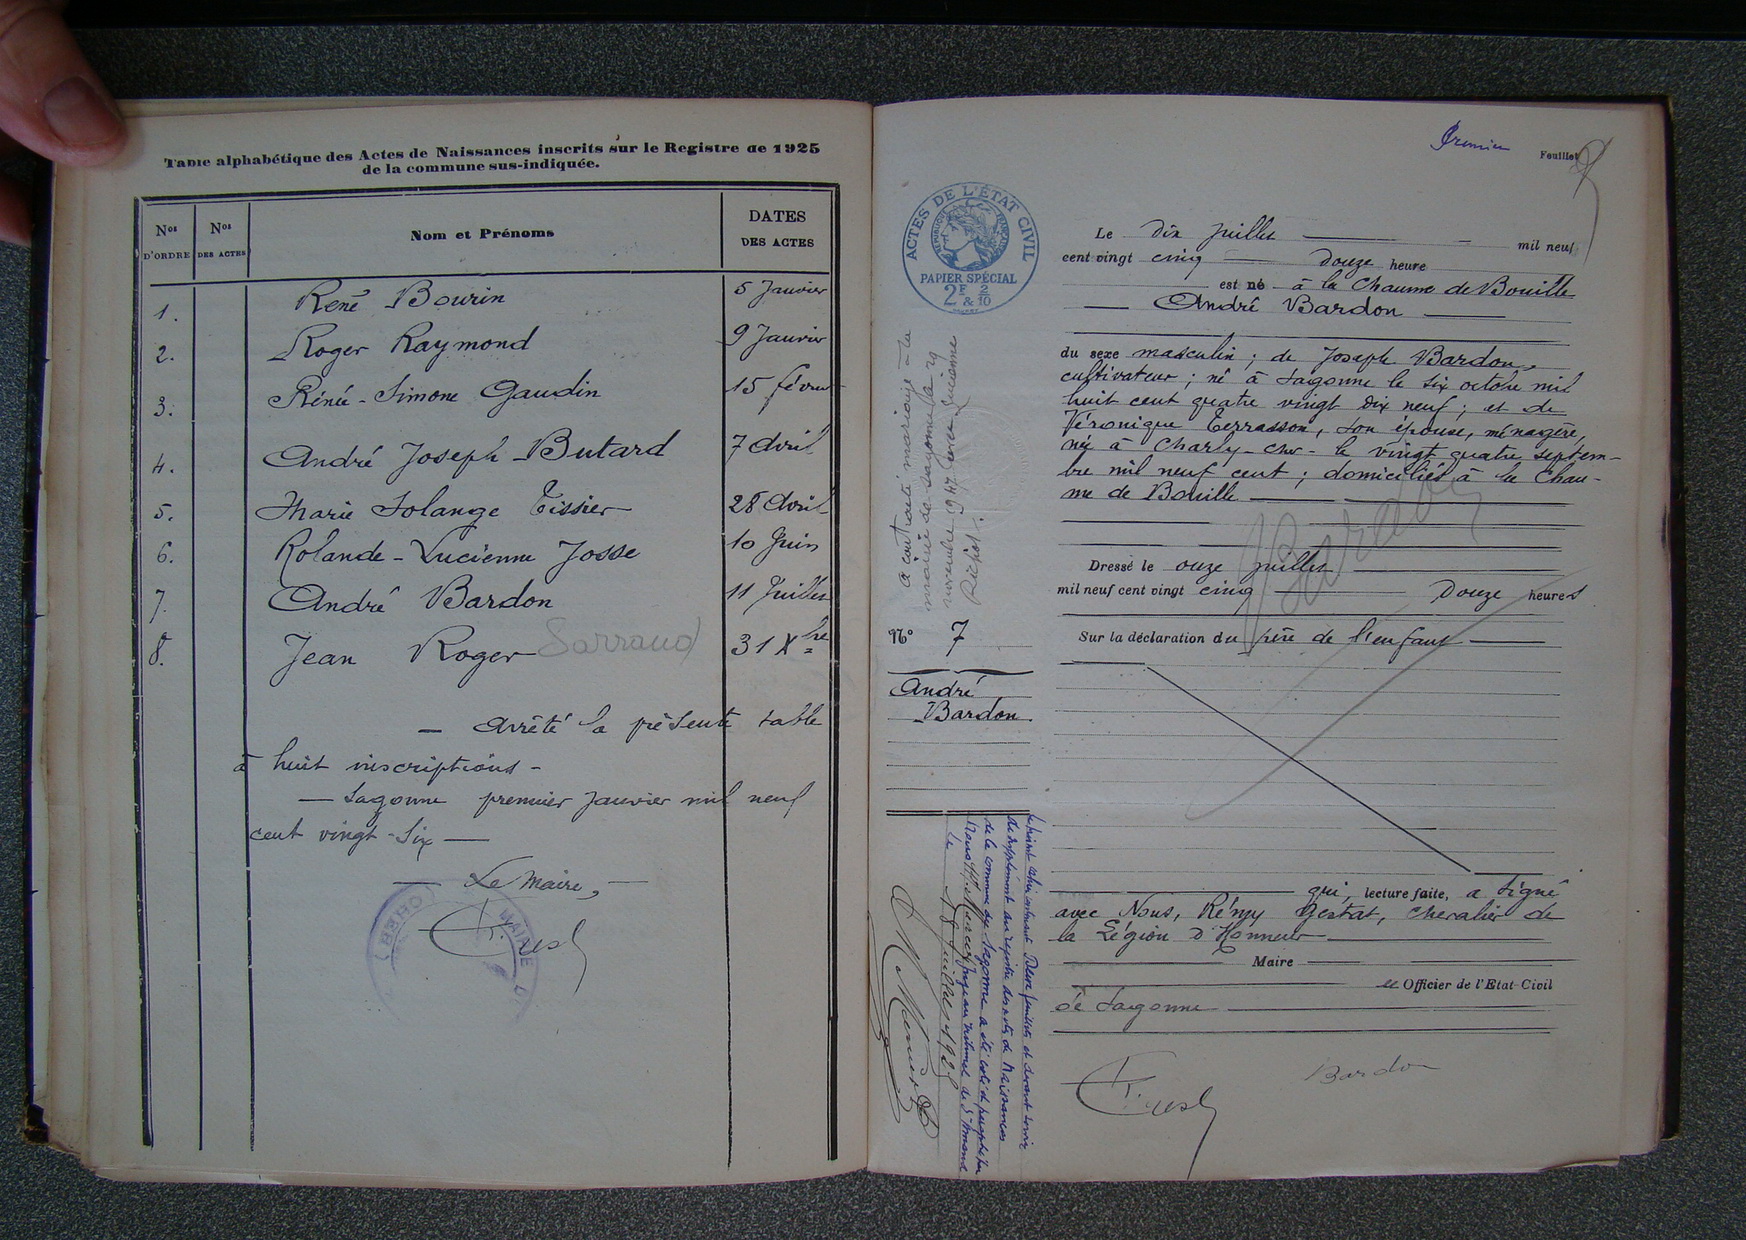 Table alphabétique des Actes de Naissances inscrits sur le Registre de 1925
de la commune sus-indiquée.
Nos D'ORDRE
Nos DES ACTES
Nom et Prénoms
DATES DES ACTES
1. René Bourin 5 Janvier
2. Roger Raymond 9 Janvier
3. Rénée-Simone Gaudin 15 février
4. André Joseph Butard 7 Avril
5. Marie Solange Tissier 28 Avril
6. Rolande-Lucienne Josse 10 Juin
7. André Bardon 11 Juillet
8. Jean Roger Sarraud 31 Xbre
— Arrêté la présente table
à huit inscriptions -
— Sagonne premier Janvier mil neuf
cent vingt-six —
— Le Maire, —
MAIRIE D
(CHER)
Premier Feuillet
ACTES DE L'ÉTAT CIVIL
RÉPUBLIQUE FRANÇAISE
PAPIER SPÉCIAL
2F & 2/10
Le dix juillet mil neuf
cent vingt cinq douze heure
est né à la Chaume de Bouille
André Bardon
du sexe masculin ; de Joseph Bardon,
cultivateur ; né à Sagonne le six octobre mil
huit cent quatre vingt dix neuf ; et de
Véronique Terrasson, son épouse, ménagère,
née à Charly-cher- le vingt quatre septem-
bre mil neuf cent ; domiciliés à la Chau-
me de Bouille
Bardon
Dressé le onze juillet
mil neuf cent vingt cinq Douze heures
Sur la déclaration du père de l'enfant
qui, lecture faite, a signé
avec Nous, Rémy Gestat, chevalier de
la Légion d'Honneur
Maire
Officier de l'Etat-Civil
de Sagonne
Bardon
A contracté mariage à la
mairie de Sagonne le 29
novembre 1947 avec
N° 7
André
Bardon
Le présent cahier contenant Deux feuillets et devant servir
de supplément au registre des actes de Naissances
de la commune de Sagonne a été coté et paraphé par
Nous Mercier Juge au tribunal de St Amand
le 18 Juillet 192